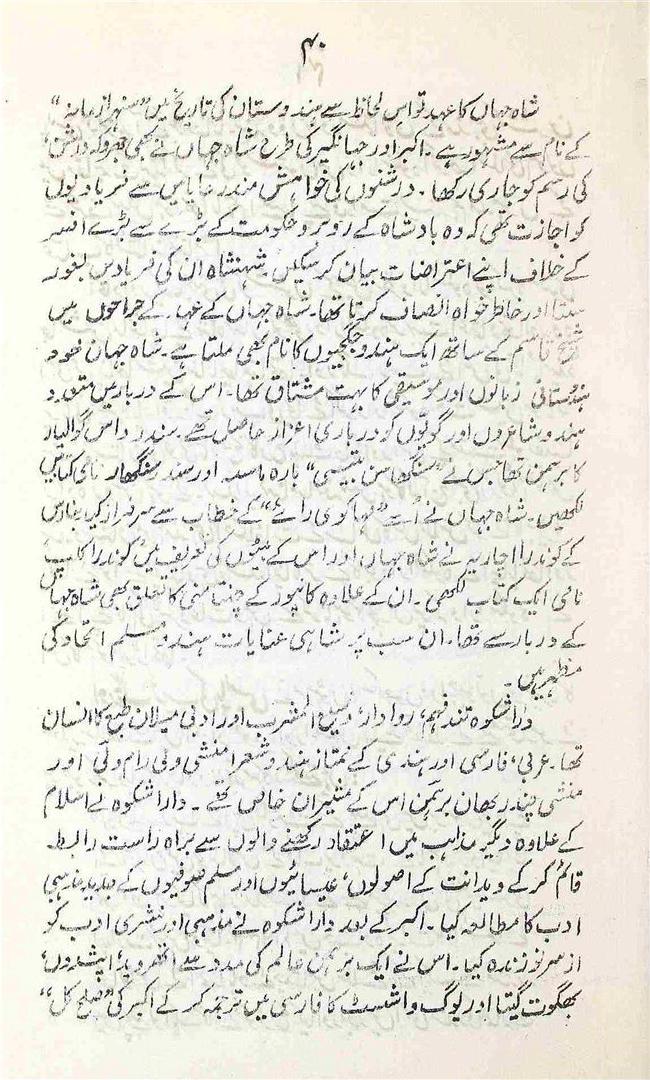 ۴۰
شاہ جہاں کا عہد تو اس لحاظ سے ہندوستان کی تاریخ میں ”سنہرا زمانہ“
کے نام سے مشہور ہے۔ اکبر اور جہانگیر کی طرح شاہ جہاں نے بھی جھروکہ درشن‘
کی رسم کو جاری رکھا۔ درشنوں کی خواہش مند رعایا میں سے فریادیوں
کو اجازت تھی کہ وہ بادشاہ کے روبرو حکومت کے بڑے سے بڑے افسر
کے خلاف اپنے اعتراضات بیان کر سکیں۔ شہنشاہ ان کی فریادیں بغور
سنتا اور خاطر خواہ انصاف کرتا تھا۔ شاہ جہاں کے عہد کے جراحوں میں
شیخ قاسم کے ساتھ ایک ہندو جگجیون کا نام بھی ملتا ہے۔ شاہ جہان خود
ہندوستانی زبانوں اور موسیقی کا بہت مشتاق تھا۔ اس کے دربار میں متعدد
ہندو شاعروں اور گویّوں کو درباری اعزاز حاصل تھے۔ سندر داس گوالیار
کا برہمن تھا جس نے ”سنگھاسن بتیسی“ بارہ ماسہ اور سندر سنگھار نامی کتابیں
لکھیں۔ شاہ جہاں نے اُسے ”مہا کوی رائے“ کے خطاب سے سرفراز کیا۔ بنارس
کے کوندرا اچاریہ نے شاہ جہاں اور اس کے بیٹوں کی تعریف میں کوندرا کلپ
نامی ایک کتاب لکھی۔ ان کے علاوہ کانپور کے چنتامنی کا تعلق بھی شاہ جہاں
کے دربار سے تھا۔ ان سب پر شاہی عنایات ہندو مسلم اتحاد کی
مظہر ہیں۔
دارا شکوہ تند فہم، روادار، وسیع المشرب اور ادبی میلان طبع کا انسان
تھا۔ عربی، فارسی اور ہندی کے ممتاز ہندو شعرا منشی ولی رام ولی اور
منشی چندر بھان برہمن اس کے مشیران خاص تھے۔ دارا شکوہ نے اسلام
کے علاوہ دیگر مذاہب میں اعتقاد رکھنے والوں سے براہ راست رابطہ
قائم کر کے ویدانت کے اصولوں، عیسائیوں اور مسلم صوفیوں کے جدید مذہبی
ادب کا مطالعہ کیا۔ اکبر کے بعد دارا شکوہ نے مذہبی اور نثری ادب کو
از سرِ نو زندہ کیا۔ اس نے ایک برہمن عالم کی مدد سے اتھروید، اپنشدوں،
بھگوت گیتا اور یوگ واشسٹ کا فارسی میں ترجمہ کر کے اکبر کی ”صلح کل“